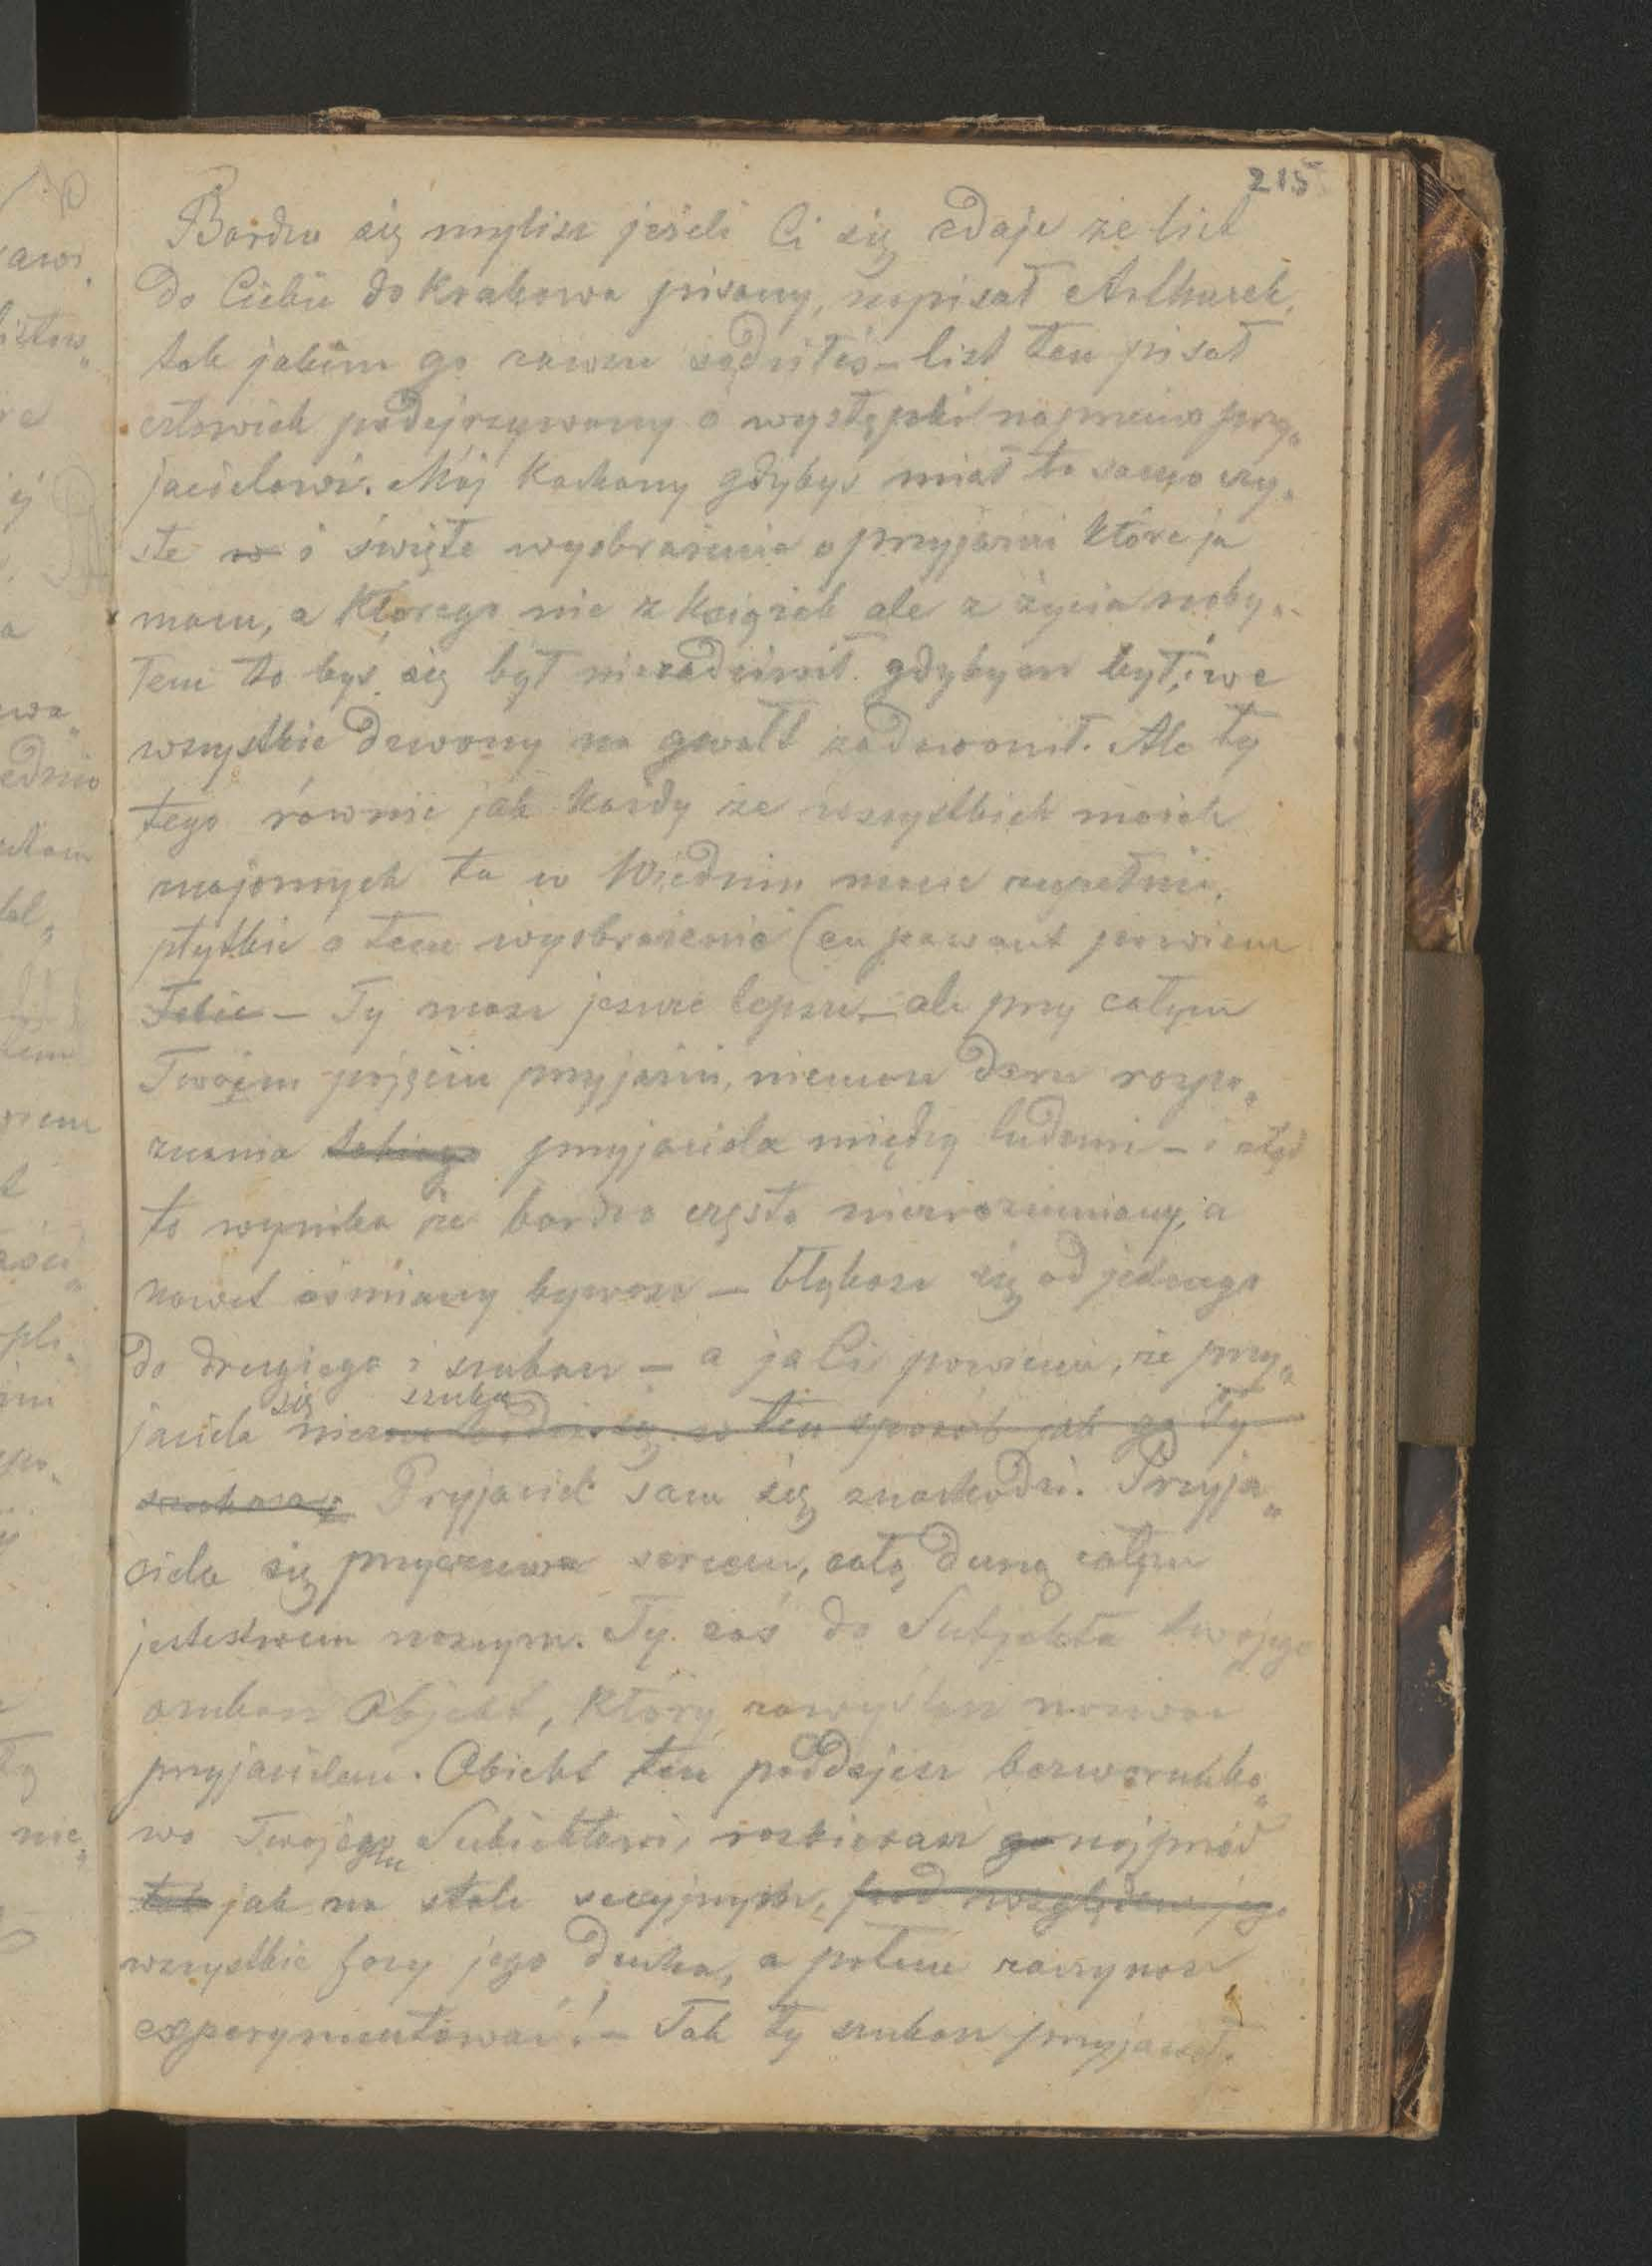 215
Bardzo się mylisz jeżeli Ci się zdaje że list
do Ciebie do Krakowa pisany, napisał Arthurek,
tak jakim go zawsze sądziłeś – list ten pisał
człowiek podejrzywany o występki naprzeciw przy„
jacielowi. Mój Kochany gdybyś miał to samo czy„
ste w i święte wyobrażenia o przyjaźni które ja
mam, a którego nie z książek ale z życia naby„
łem to byś się był niezadziwił gdybym był i we
wszystkie dzwony na gwałt zadzwonił. Ale ty
tego równie jak każdy ze wszystkich moich
znajomych tu w Wiedniu macie zupełnie,
płytkie o tem wyobrażenie (en passant powiem
Tobie – Ty masz jeszcze lepsze – ale przy całym
Twojem pojęciu przyjaźni, niemasz daru rozpo„
znania takiego przyjaciela między ludźmi – i ztąd
to wynika że bardzo często niezrozumiany, a
nawet ośmiany bywasz – błąkasz się od jednego
do drugiego i szukasz – a ja Ci powiem, że przy„
się szuka
jaciela nie w ten sposób jak go Ty
szukasz Przyjaciel sam się znachodzi. Przyja„
ciela się przyczuwa sercem, całą duszą całym
jestestwem naszym. Ty zaś do Subjekta twojego
szukasz Objekt, który zowyś nazwać
przyjacielem. Obiekt ten poddajesz bezwarunko„
wo Twojego Subiektowi, rozbierasz go najprzód
mu
tak jak na stole sekcyjnym, pod względem jego
wszystkie fazy jego ducha, a potem zaczynasz
experymentować! – Tak ty szukasz przyjaciół.